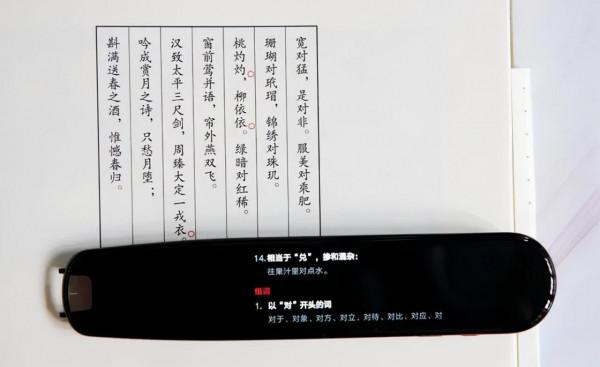 宽对猛，是对非。服美对乘肥。
珊瑚对玳瑁，锦绣对珠玑。
桃灼灼，柳依依。绿暗对红稀。
窗前莺并语，帘外燕双飞。
汉致太平三尺剑，周臻大定一戎衣。
吟成赏月之诗，只愁月堕；
斟满送春之酒，惟憾春归。
14.相当于“兑”，掺和混杂：
往果汁里对点水。
组词
1. 以“对”开头的词
对于、对象、对方、对立、对待、对比、对应、对